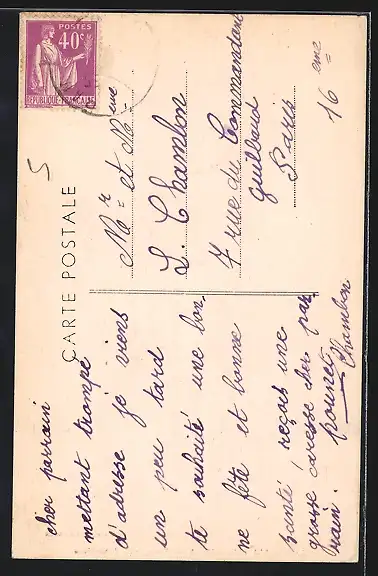 POSTES
40c
REPUBLIQUE FRANÇAISE
CARTE POSTALE
Mr et Mme
L. Chamlon
7 rue du Commandant
Guilbaud
Paris 16 eme
cher parrain
mettant trompé
d'adresse je viens
un peu tard
te souhaité une bon
ne fête et bonne
santé reçois une
grosse caresse de par
rain.
Chambon
5